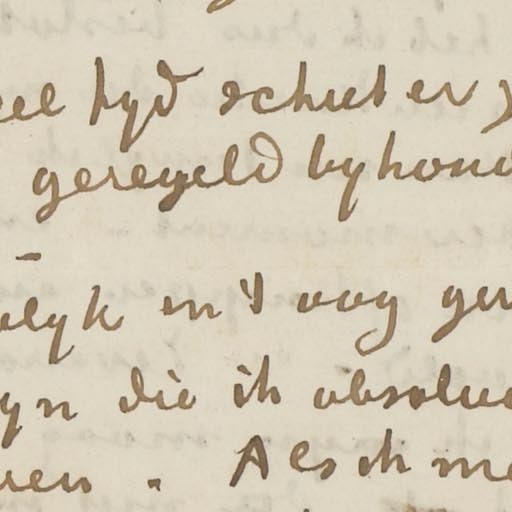 eel tyd schiet er
geregeld byhoud
elyk in 't oog ger
yn die ik absolue
ven. Als ik me